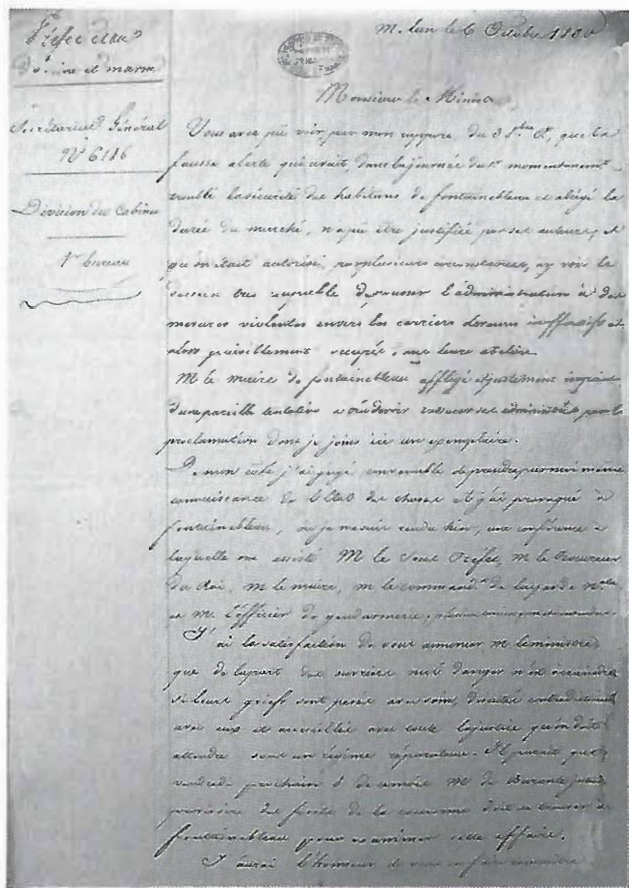 Préfecture
De Seine et marne
Secrétariat Général
N° 6186
Division du Cabinet
1er bureau
Melun le 6 Octobre 1830
Monsieur le Ministre,
Vous avez pu voir, par mon rapport du 3 que la
fausse alerte qui avait, dans la journée du 1er momentaném.t
troublé la sécurité des habitans de fontainebleau et abrégé la
durée du marché, n'a pu être justifiée par ses auteurs, et
qu'on était autorisé, par plusieurs circonstances, à y voir le
dessein très coupable de pousser l'administration à des
mesures violentes envers les carriers devenus inoffensifs et
alors paisiblement occupés, dans leurs ateliers.
M. le maire de fontainebleau affligé et justement
d'une pareille tentative a cru devoir rassurer ses administrés par la
proclamation dont je joins ici un exemplaire.
De mon côté j'ai jugé convenable de prendre par moi même
connaissance de l'état des choses et j'ai provoqué à
fontainebleau, où je me suis rendu hier, une conférence à
laquelle ont assisté M. le Sous Préfet, M. le Procureur
du Roi, M. le maire, M. le command.t de la garde N.ale
et M. l'officier de gendarmerie,
J'ai la satisfaction de vous annoncer, M. le ministre,
que de la part des ouvriers nul danger n'est à craindre
si leurs griefs sont pesés avec soin, discutés contradictoirement
avec eux et accueillis avec toute la justice qu'on doit
attendre sous un régime réparateur. Il paraît que
vendredi prochain 8 de ce mois M. de Barante
provisoire des forêts de la couronne doit se trouver à
fontainebleau pour examiner cette affaire.
J'aurai l'honneur de vous en faire connaître